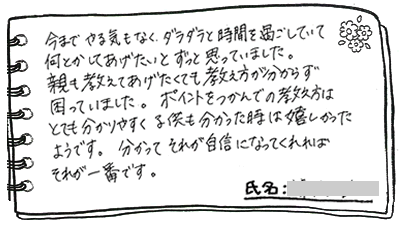 今までやる気もなく、ダラダラと時間を過ごしていて
何とかしてあげたいとずっと思っていました。
親も教えてあげたくても教え方が分からず
困っていました。ポイントをつかんでの教え方は
とても分かりやすく子供も分かった時は嬉しかった
ようです。分かってそれが自信になってくれれば
それが一番です。
氏名: